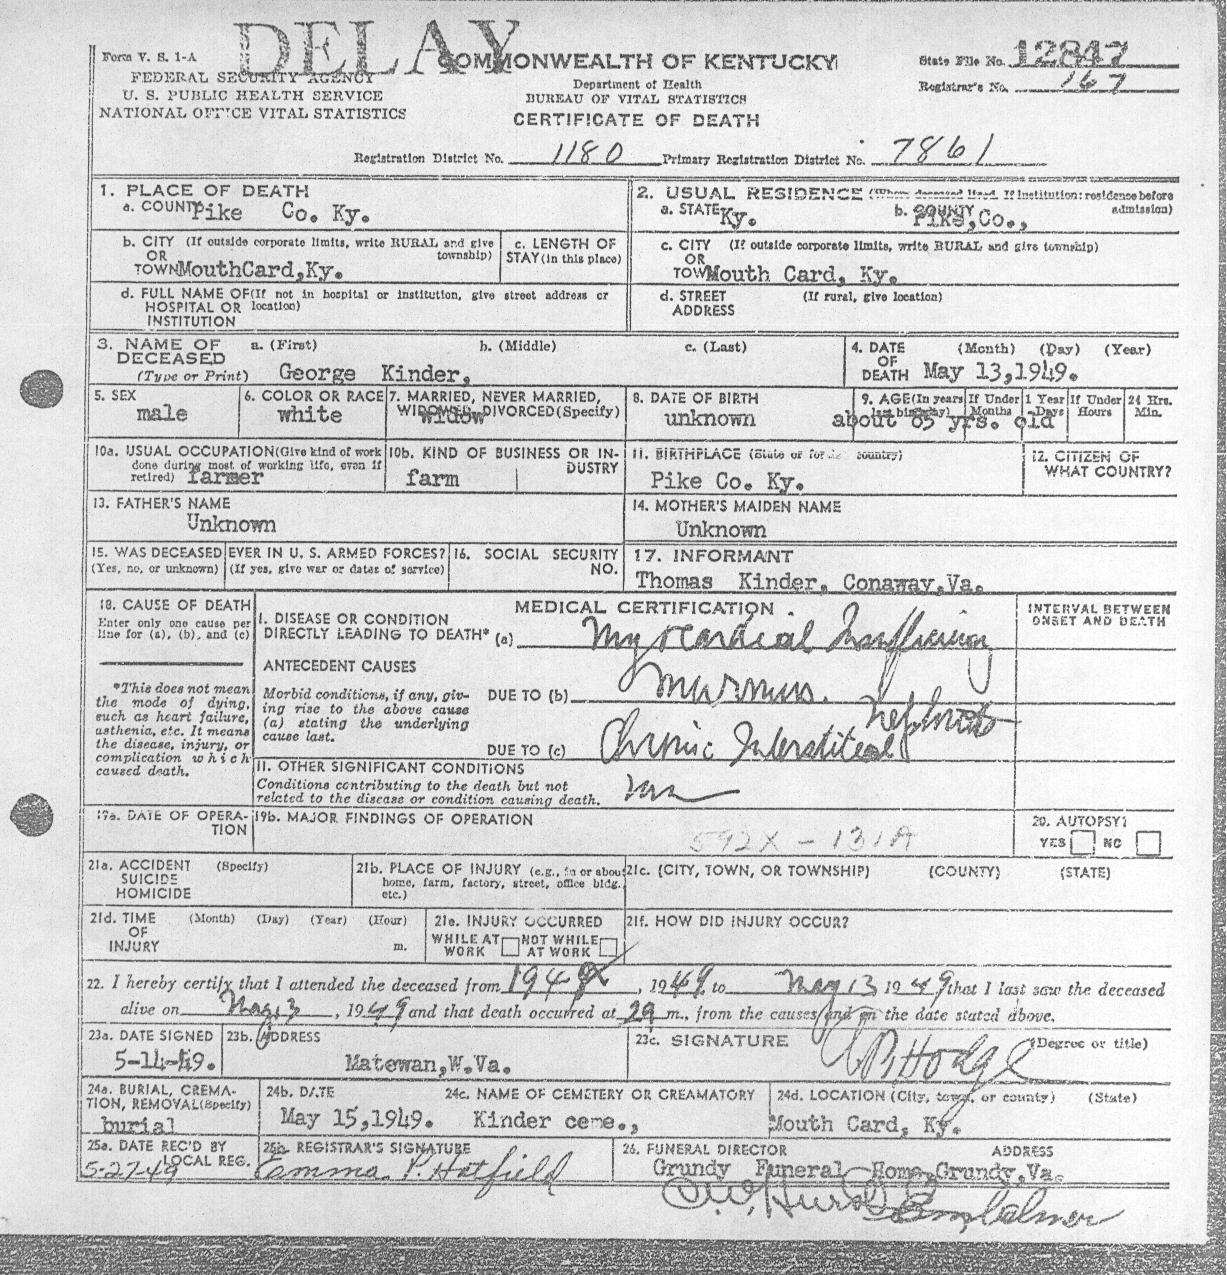 DELAY
Form V. S. 1-A
FEDERAL SECURITY AGENCY
U. S. PUBLIC HEALTH SERVICE
NATIONAL OFFICE VITAL STATISTICS
COMMONWEALTH OF KENTUCKY
Department of Health
BUREAU OF VITAL STATISTICS
CERTIFICATE OF DEATH
State File No. 12847
Registrar's No. 167
Registration District No. 1180 Primary Registration District No. 7861
1. PLACE OF DEATH
a. COUNTY Pike Co. Ky.
2. USUAL RESIDENCE (Where deceased lived. If institution: residence before admission)
a. STATE Ky. b. COUNTY Pike,Co.,
b. CITY (If outside corporate limits, write RURAL and give township)
OR
TOWN MouthCard,Ky.
c. LENGTH OF STAY (in this place)
c. CITY (If outside corporate limits, write RURAL and give township)
OR
TOWN Mouth Card, Ky.
d. FULL NAME OF (If not in hospital or institution, give street address or location)
HOSPITAL OR
INSTITUTION
d. STREET ADDRESS (If rural, give location)
3. NAME OF DECEASED
(Type or Print)
a. (First) b. (Middle) c. (Last)
George Kinder,
4. DATE OF DEATH (Month) (Day) (Year)
May 13,1949.
5. SEX
male
6. COLOR OR RACE
white
7. MARRIED, NEVER MARRIED, WIDOWED, DIVORCED (Specify)
widow
8. DATE OF BIRTH
unknown
9. AGE (In years last birthday) If Under 1 Year Months Days If Under 24 Hrs. Hours Min.
about 85 yrs. old
10a. USUAL OCCUPATION (Give kind of work done during most of working life, even if retired)
farmer
10b. KIND OF BUSINESS OR INDUSTRY
farm
11. BIRTHPLACE (State or foreign country)
Pike Co. Ky.
12. CITIZEN OF WHAT COUNTRY?
13. FATHER'S NAME
Unknown
14. MOTHER'S MAIDEN NAME
Unknown
15. WAS DECEASED EVER IN U. S. ARMED FORCES?
(Yes, no, or unknown) (If yes, give war or dates of service)
16. SOCIAL SECURITY NO.
17. INFORMANT
Thomas Kinder, Conaway,Va.
18. CAUSE OF DEATH
Enter only one cause per line for (a), (b), and (c)
*This does not mean the mode of dying, such as heart failure, asthenia, etc. It means the disease, injury, or complication which caused death.
MEDICAL CERTIFICATION
INTERVAL BETWEEN ONSET AND DEATH
I. DISEASE OR CONDITION DIRECTLY LEADING TO DEATH* (a) Myocardial Insufficiency
ANTECEDENT CAUSES
Morbid conditions, if any, giving rise to the above cause (a) stating the underlying cause last.
DUE TO (b)
DUE TO (c) Chronic Interstitial Nephritis
II. OTHER SIGNIFICANT CONDITIONS
Conditions contributing to the death but not related to the disease or condition causing death.
19a. DATE OF OPERATION
19b. MAJOR FINDINGS OF OPERATION
592X - 131A
20. AUTOPSY?
YES NO
21a. ACCIDENT (Specify)
SUICIDE
HOMICIDE
21b. PLACE OF INJURY (e.g., in or about home, farm, factory, street, office bldg. etc.)
21c. (CITY, TOWN, OR TOWNSHIP) (COUNTY) (STATE)
21d. TIME OF INJURY (Month) (Day) (Year) (Hour) m.
21e. INJURY OCCURRED
WHILE AT WORK NOT WHILE AT WORK
21f. HOW DID INJURY OCCUR?
22. I hereby certify that I attended the deceased from 1948, 1949 to May 13 1949 that I last saw the deceased
alive on May 13, 1949 and that death occurred at 2a m., from the causes and on the date stated above.
23a. DATE SIGNED
5-14-49.
23b. ADDRESS
Matewan,W.Va.
23c. SIGNATURE (Degree or title)
Hodge
24a. BURIAL, CREMATION, REMOVAL (Specify)
burial
24b. DATE
May 15,1949.
24c. NAME OF CEMETERY OR CREAMATORY
Kinder ceme.,
24d. LOCATION (City, town, or county) (State)
Mouth Card, Ky.
25a. DATE REC'D BY LOCAL REG.
5-27-49
25b. REGISTRAR'S SIGNATURE
Emma P. Hatfield
26. FUNERAL DIRECTOR ADDRESS
Grundy Funeral Home,Grundy,Va.
Embalmer